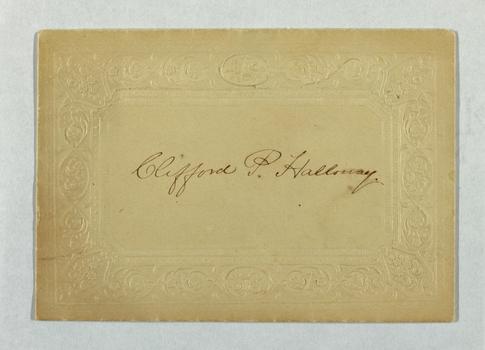 Clifford P. Halloway